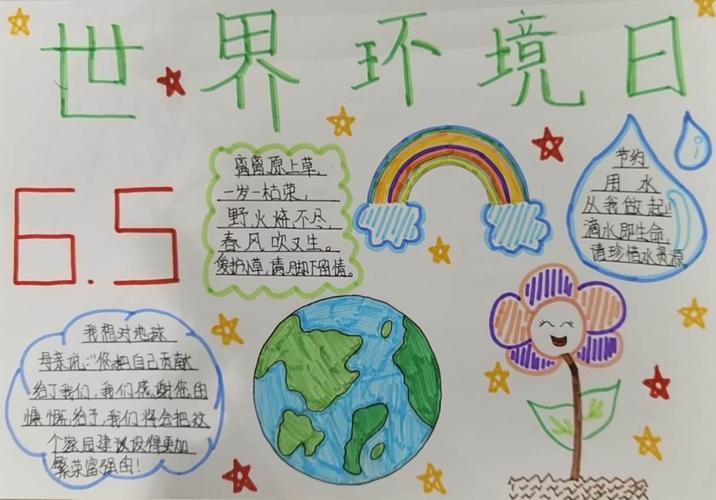 世界环境日
6.5
离离原上草,
一岁一枯荣,
野火烧不尽,
春风吹又生。
爱护小草,请脚下留情。
节约
用水
从我做起!
滴水即生命,
请珍惜水资源
我想对地球
母亲说:“您把自己贡献
给了我们,我们感谢您的
慷慨给予,我们将会把这
个家园建设得更加
繁荣富强的!